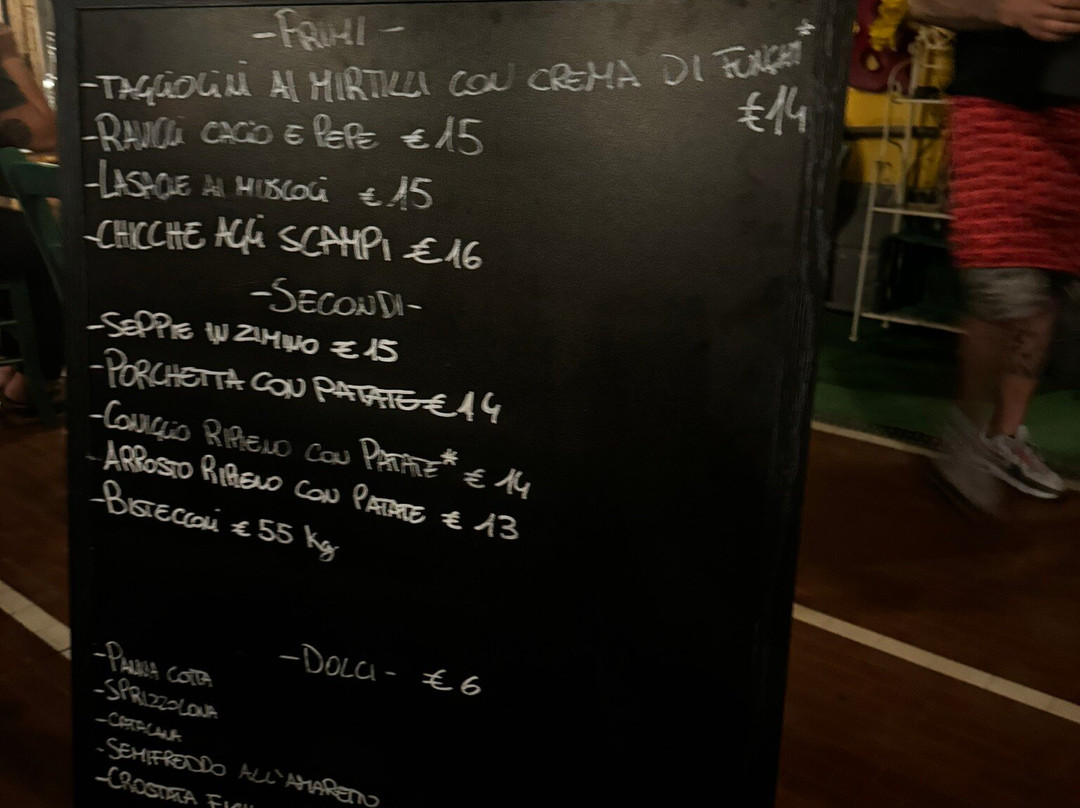 -PRIMI-
-TAGLIOLINI AI MIRTILLI CON CREMA DI FUNGHI*
€14
-RAVIOLI CACIO E PEPE €15
-LASAGNE AI MUSCOLI €15
-CHICCHE AGLI SCAMPI €16
-SECONDI-
-SEPPIE IN ZIMINO €15
-PORCHETTA CON PATATE €14
-CONIGLIO RIPIENO CON PATATE* €14
-ARROSTO RIPIENO CON PATATE €13
-BISTECCONI €55 kg
-DOLCI- €6
-PANNA COTTA
-SPRIZZOLONA
-CATALANA
-SEMIFREDDO ALL'AMARETTO
-CROSTATA